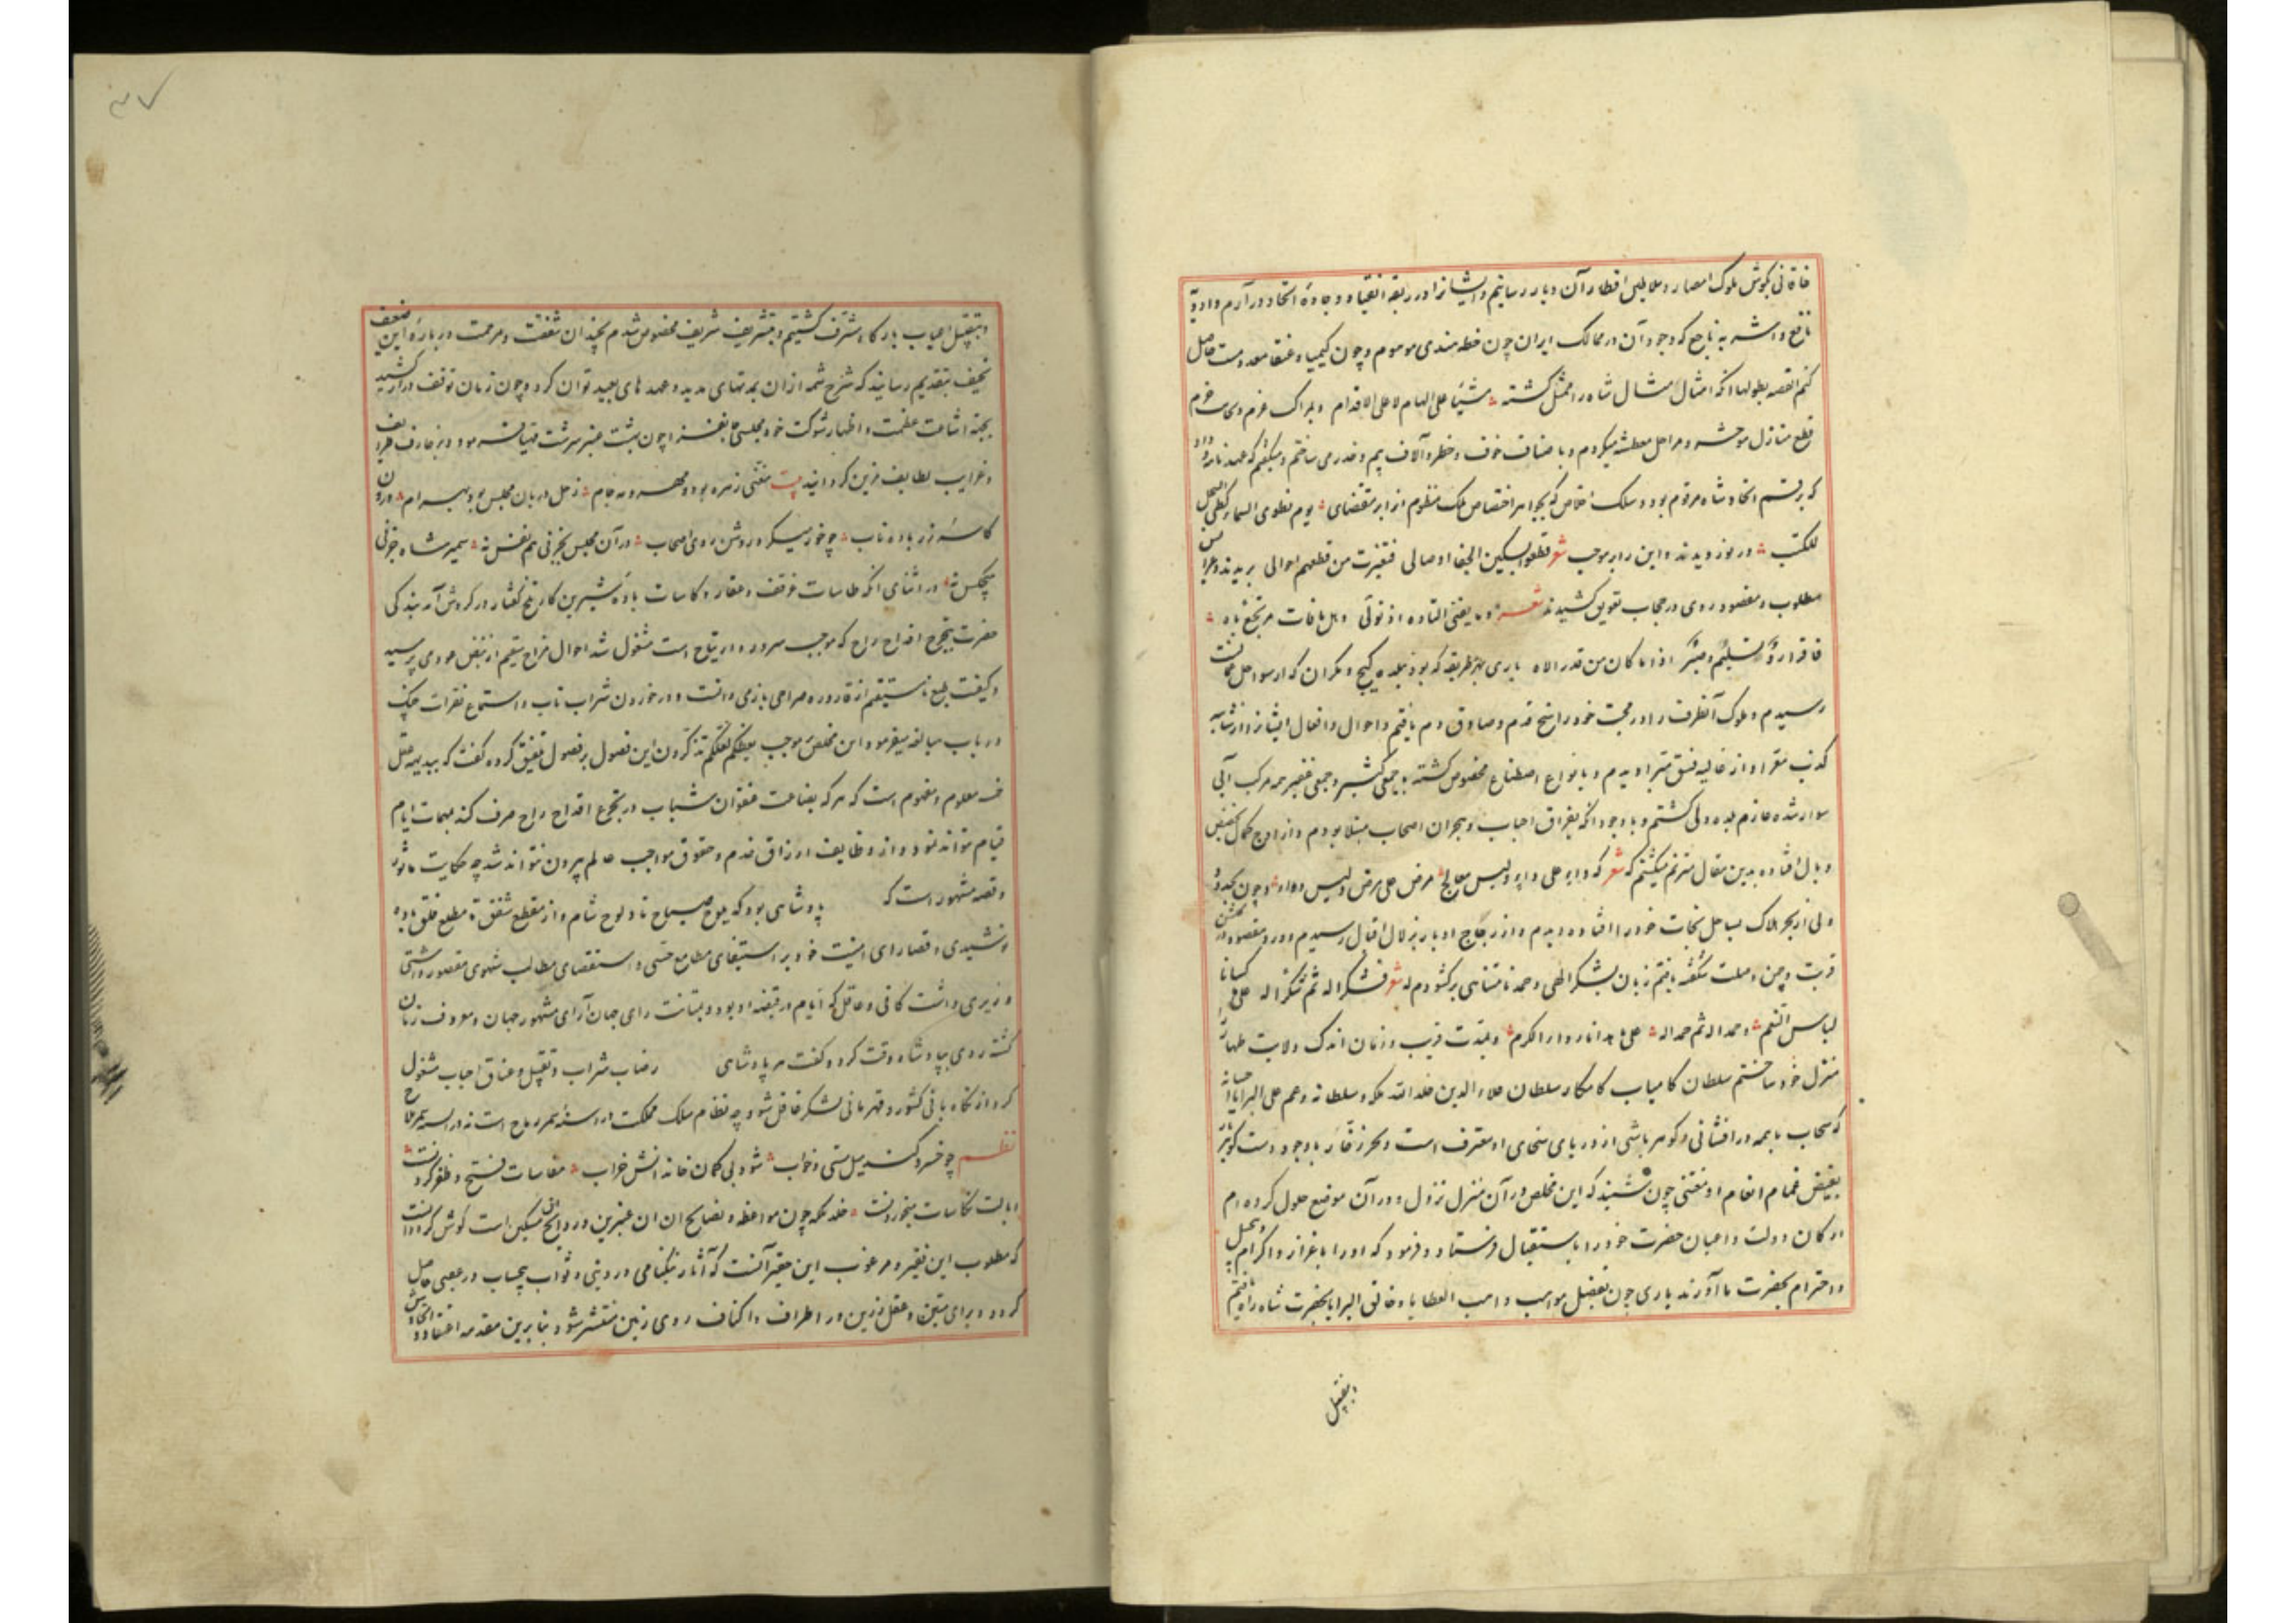 خاقانی بگوش ملوک امصار و سلاطین اقطار آن دیار رسانیم و ایشانرا در ربقه انقیاد و جاده اتحاد در آرم و ادویهٔ
نافع و اشربهٔ ناجع که وجود آن در ممالک ایران چون خطهٔ هندی موموم و چون کیمیا و عنقا معدومست حاصل
کنم القصه بطولها آنکه امتثال مثال شاه را ممتثل گشته مشیا علی الهام لا علی الاقدام و بمراکب عزم و
قطع منازل موحشه و مراحل معطشه میکردم و با ضعاف خوف و خطر و آلاف بیم و حذر می ساختم و میگفتم که عهدنامه
که برقم اتحاد شاه مرقوم بود و سلک اخلاص که بجواهر اختصاص ملک منظوم از ابر مقتضای یوم نطوی السماء کطی السجل
للکتب در نوردیدند و این را بر موجب شعر قطعوا بسکین الجفا اوصالی فتغیرت من قطعهم احوالی بریدند
مطلوب و مقصود روی در حجاب تعویق کشیدند شعر وما یغنی التاوه اذ تولی وهل مافات مرتجع باه
باری بهر طریقه که بود بمکران که از سواحل عمانست
رسیدم و ملوک آنطرف را در محبت خود راسخ قدم و صادق دم یافتم و احوال و افعال ایشانرا از شایبه
کذب معرا و از غایلهٔ فسق مبرا دیدم و بانواع اصطناع مخصوص گشته با جمعی کثیر و جمعی غفیر بر مرکب آبی
سوار شده عازم دهلی گشتم و با وجود آنکه بفراق احباب و هجران اصحاب مبتلا بودم و از اوج کمال بحضیض
وبال افتاده بدین مقال مترنم میگشتم که شعر مرض علی مرض ولیس دواء و چون
ولی از بحر هلاک بساحل نجات خود را افتاده دیدم و از زجاج ادبار بزلال اقبال رسیدم و ورد مقصود در گلشن
تربت و چمن وصلت شگفته یافتم زبان بشکر الهی و حمد نامتناهی برگشودم که شعر فشکرا له ثم شکرا له علی ما کسانا
لباس النعم وحمدا له ثم حمدا له علی ما هدانا بدار الکرم و بمدت قریب و زمان اندک ولایت
منزل خود ساختم سلطان کامیاب کامکار سلطان علاء الدین خلد الله ملکه و سلطانه و عم علی البرایا احسانه
که سحاب با همه در افشانی و گوهر پاشی از دریای سخای او معترف است و بحر زخار با وجود دست گوهر بار
بفیض غمام انعام او مغتنی چون شنید که این مخلص در آن منزل نزول و در آن موضع حلول کرده ام
ارکان دولت و اعیان حضرت خود را باستقبال فرستاد و فرمود که او را باعزاز و اکرام و تبجیل
و احترام بحضرت ما آورند باری چون بفضل مواهب واهب العطایا و خالق البرایا بحضرت شاه راه یافتم
و بتقبیل
۳۷
و بتقبیل اعتاب بارگاه مشرف گشتیم و بتشریف شریف مخصوص شدم چندان شفقت و مرحمت در بارهٔ این ضعیف
نحیف بتقدیم رسانید که شرح شمهٔ از ان بمدتهای مدید و عهدهای بعید توان کرد و چون زمان توقف دراز کشید
بجهة اشاعت عظمت و اظهار شوکت خود مجلسی جانفزا چون بهشت عنبر سرشت مهیا فرموده و بزخارف طریف
و غرایب لطایف مزین گردانید بیت مغنی زهره بود و مهر و مه جام زحل دربان مجلس بود و بهرام درون
کاسهٔ زر بادهٔ ناب چو خور میکرد روشن روی اصحاب در آن مجلس بجز نی هم نفس نه سمیر شاه جز نی
هیچکس نه در اثنای آنکه طاسات قرقف و عقار و کاسات بادهٔ شیرین کار تلخ گفتار در گردش آمد بندگی
حضرت بتجرع اقداح راح که موجب سرور و ارتیاح است مشغول شد احوال مزاج سقیم از نبض عودی پرسید
و کیفیت طبع نا مستقیم از قارورهٔ صراحی بازمی دانست و در خوردن شراب ناب و استماع نقرات چنگ
و رباب مبالغه میفرمود این مخلص بموجب یعظکم لعلکم تذکرون این فصول بر فصول تلفیق کرده گفت که ببدیههٔ عقل
معلوم و مفهوم است که هر که بضاعت عنفوان شباب در تجرع اقداح راح صرف کند بمهمات ایام
قیام نتواند نمود و از وظایف ارزاق خدم و حقوق مواجب حشم بیرون نتواند شد چه حکایت مأثور
و قصه مشهور است که پادشاهی بود که از صباح تا دلوج شام و از مقطع شفق تا مطلع فلق باده
نوشیدی و قصارای امنیت خود بر استیفای مطامع حسی و استقصای مطالب شهوی مقصور داشتی
وزیری داشت کافی و عاقل که ایام در قبضهٔ او بود و بمتانت رای جهان آرای مشهور جهان و معروف زمان
گشته روی بپادشاه وقت کرد و گفت هر پادشاهی رضاب شراب و تقبیل و عناق احباب مشغول
گردد از نگاه بانی کشور و قهرمانی لشکر غافل شود چه نظام سلک مملکت در اسنهٔ سمر رماح است نه در
نظم چو خسرو کند میل مستی و خواب شود بی گمان خانه انش خراب مقاسات فتح و ظفر کردنست
نه کاسات می خوردنست خلد ملکه چون مواعظ و نصایح گوش کرد
که مطلوب این فقیر و مرغوب این حقیر آنست که آثار نیکنامی در دنیی و ثواب بیحساب در عقبی حاصل
گردد و برای متین و عقل رزین در اطراف و اکناف روی زمین منتشر شود بنابرین مقدمه اعتقاد